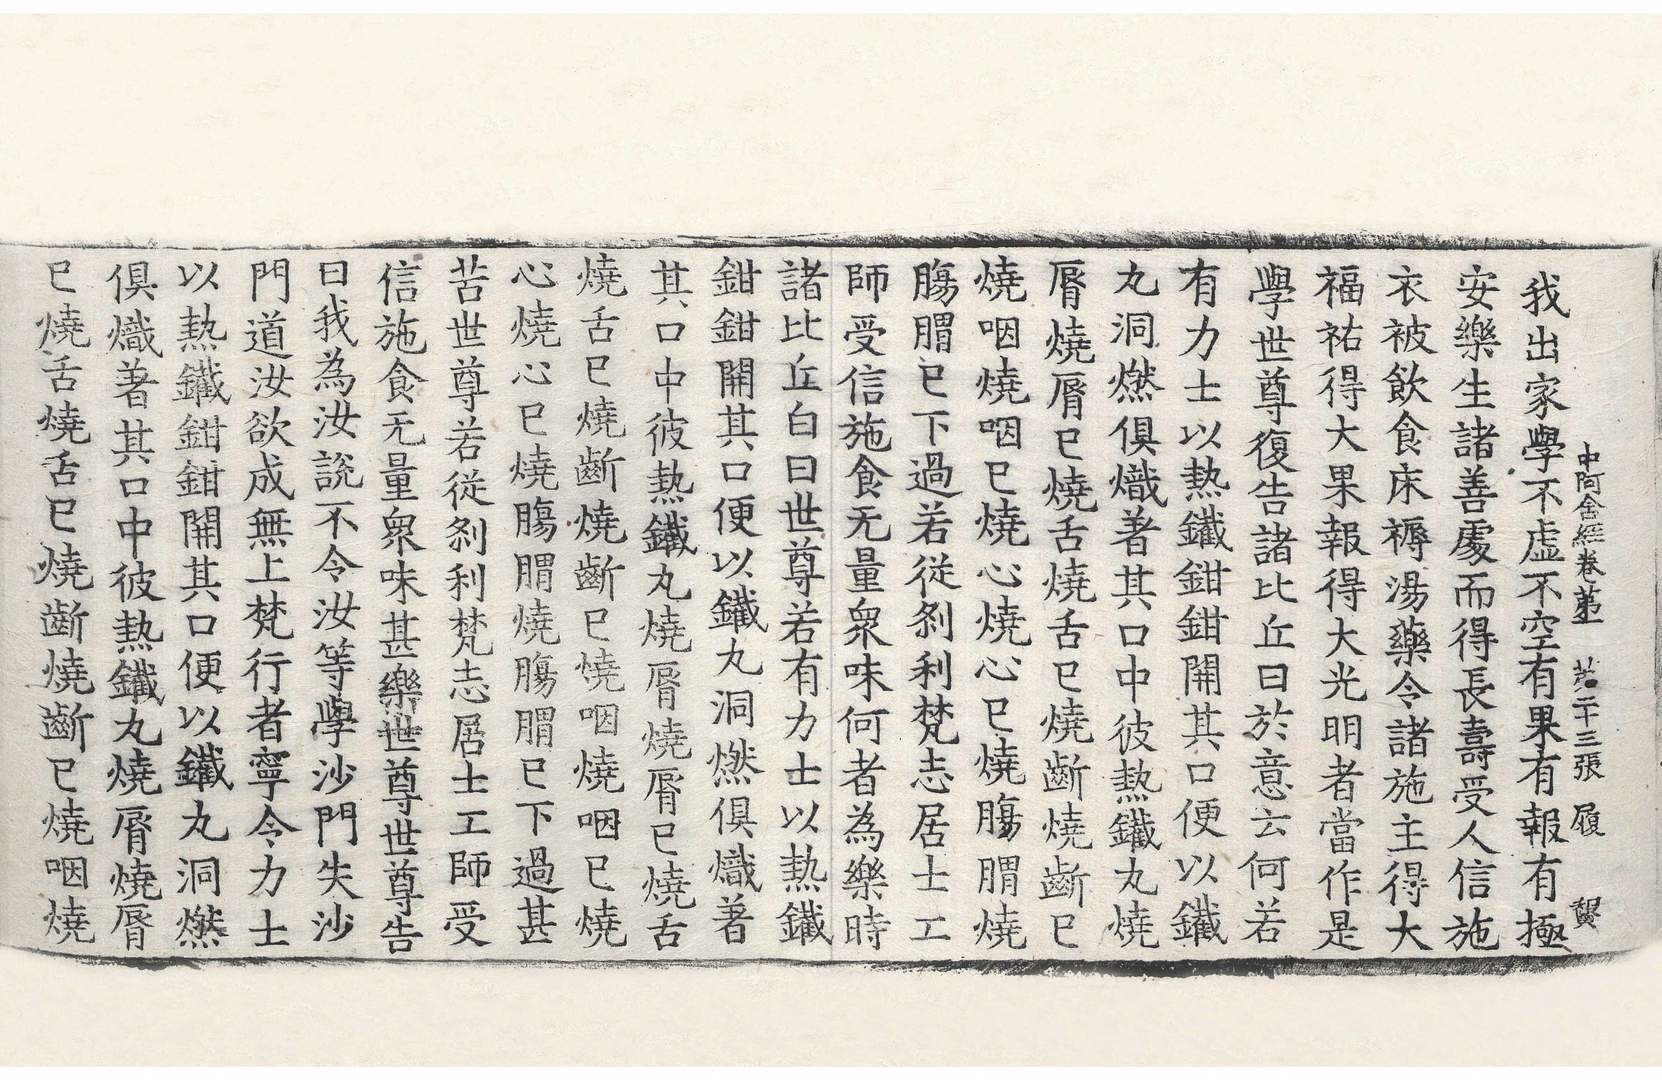 中阿含經卷苐一 苐二十三張 履
我出家學不虛不空有果有報有極
安樂生諸善處而得長壽受人信施
衣被飲食床褥湯藥令諸施主得大
福祐得大果報得大光明者當作是
學世尊復告諸比丘曰於意云何若
有力士以熱鐵鉗鉗開其口便以鐵
丸洞燃俱熾著其口中彼熱鐵丸燒
脣燒脣已燒舌燒舌已燒齗燒齗已
燒咽燒咽已燒心燒心已燒膓胃燒
膓胃已下過若從剎利梵志居士工
師受信施食无量衆味何者為樂時
諸比丘白曰世尊若有力士以熱鐵
鉗鉗開其口便以鐵丸洞燃俱熾著
其口中彼熱鐵丸燒脣燒脣已燒舌
燒舌已燒齗燒齗已燒咽燒咽已燒
心燒心已燒膓胃燒膓胃已下過甚
苦世尊若從剎利梵志居士工師受
信施食无量衆味甚樂世尊世尊告
曰我為汝說不令汝等學沙門失沙
門道汝欲成無上梵行者寧令力士
以熱鐵鉗鉗開其口便以鐵丸洞燃
俱熾著其口中彼熱鐵丸燒脣燒脣
已燒舌燒舌已燒齗燒齗已燒咽燒